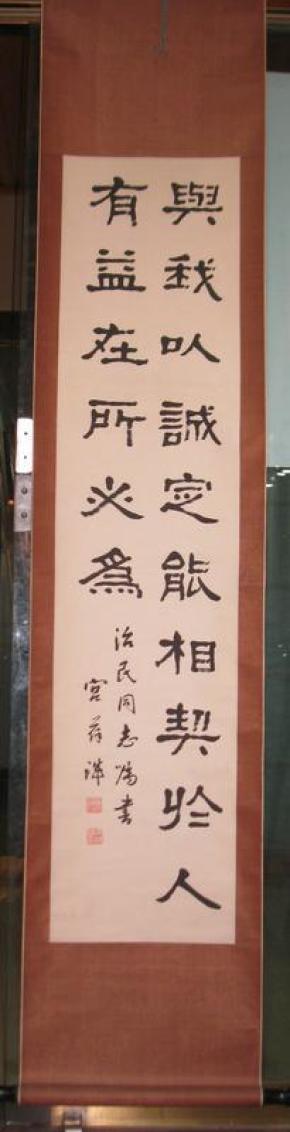 與我以誠定能相契於人
有益在所必為
治民同志屬書
宮葆諴